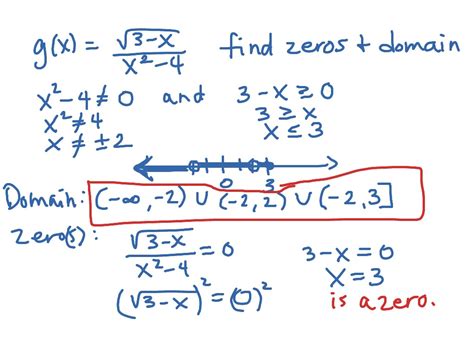 g(x) = √(3-x) / (x²-4) find zeros + domain
x²-4≠0 and 3-x ≥ 0
x²≠4 3 ≥ x
x ≠ ±2 x ≤ 3
0 3
Domain: (-∞,-2) ∪ (-2,2) ∪ (-2,3]
Zero(s): √(3-x) / (x²-4) = 0 3-x=0
(√(3-x))² = (0)² x=3
is a zero.